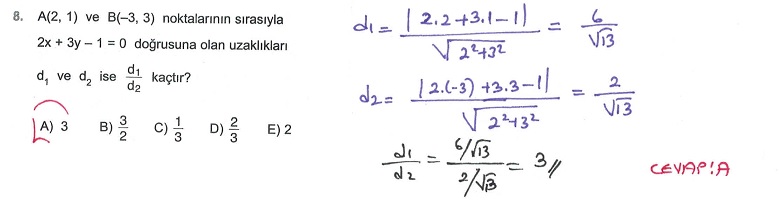 8. A(2, 1) ve B(–3, 3) noktalarının sırasıyla
2x + 3y – 1 = 0 doğrusuna olan uzaklıkları
d₁ ve d₂ ise d₁/d₂ kaçtır?
A) 3 B) 3/2 C) 1/3 D) 2/3 E) 2
d₁ = |2.2+3.1–1| / √(2²+3²) = 6/√13
d₂ = |2.(-3)+3.3–1| / √(2²+3²) = 2/√13
d₁/d₂ = (6/√13)/(2/√13) = 3//
CEVAP:A